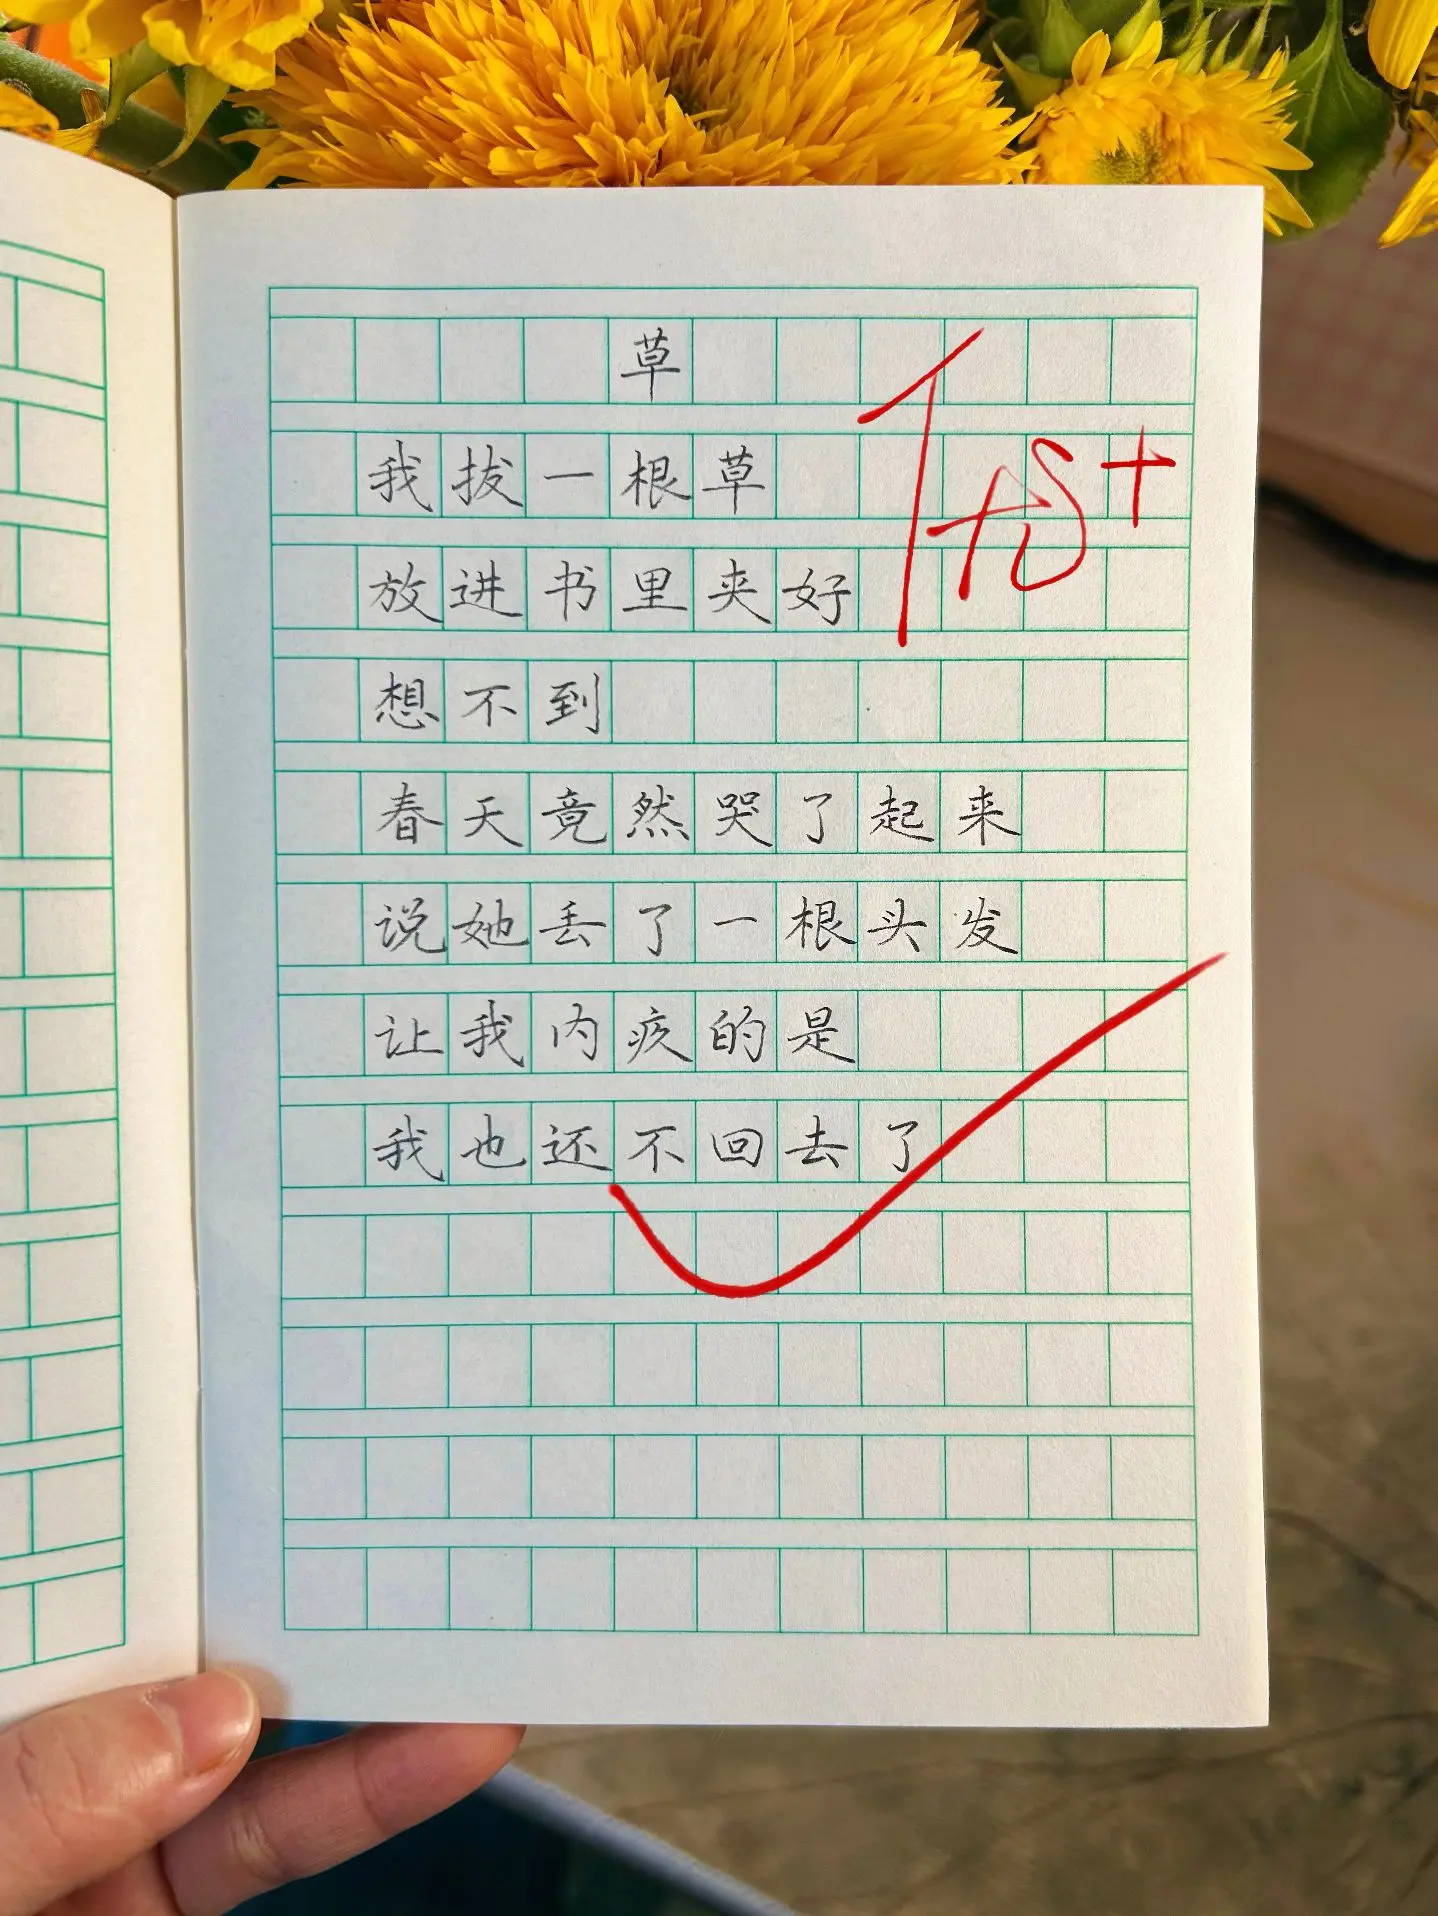 草
我拔一根草
放进书里夹好
想不到
春天竟然哭了起来
说她丢了一根头发
让我内疚的是
我也还不回去了